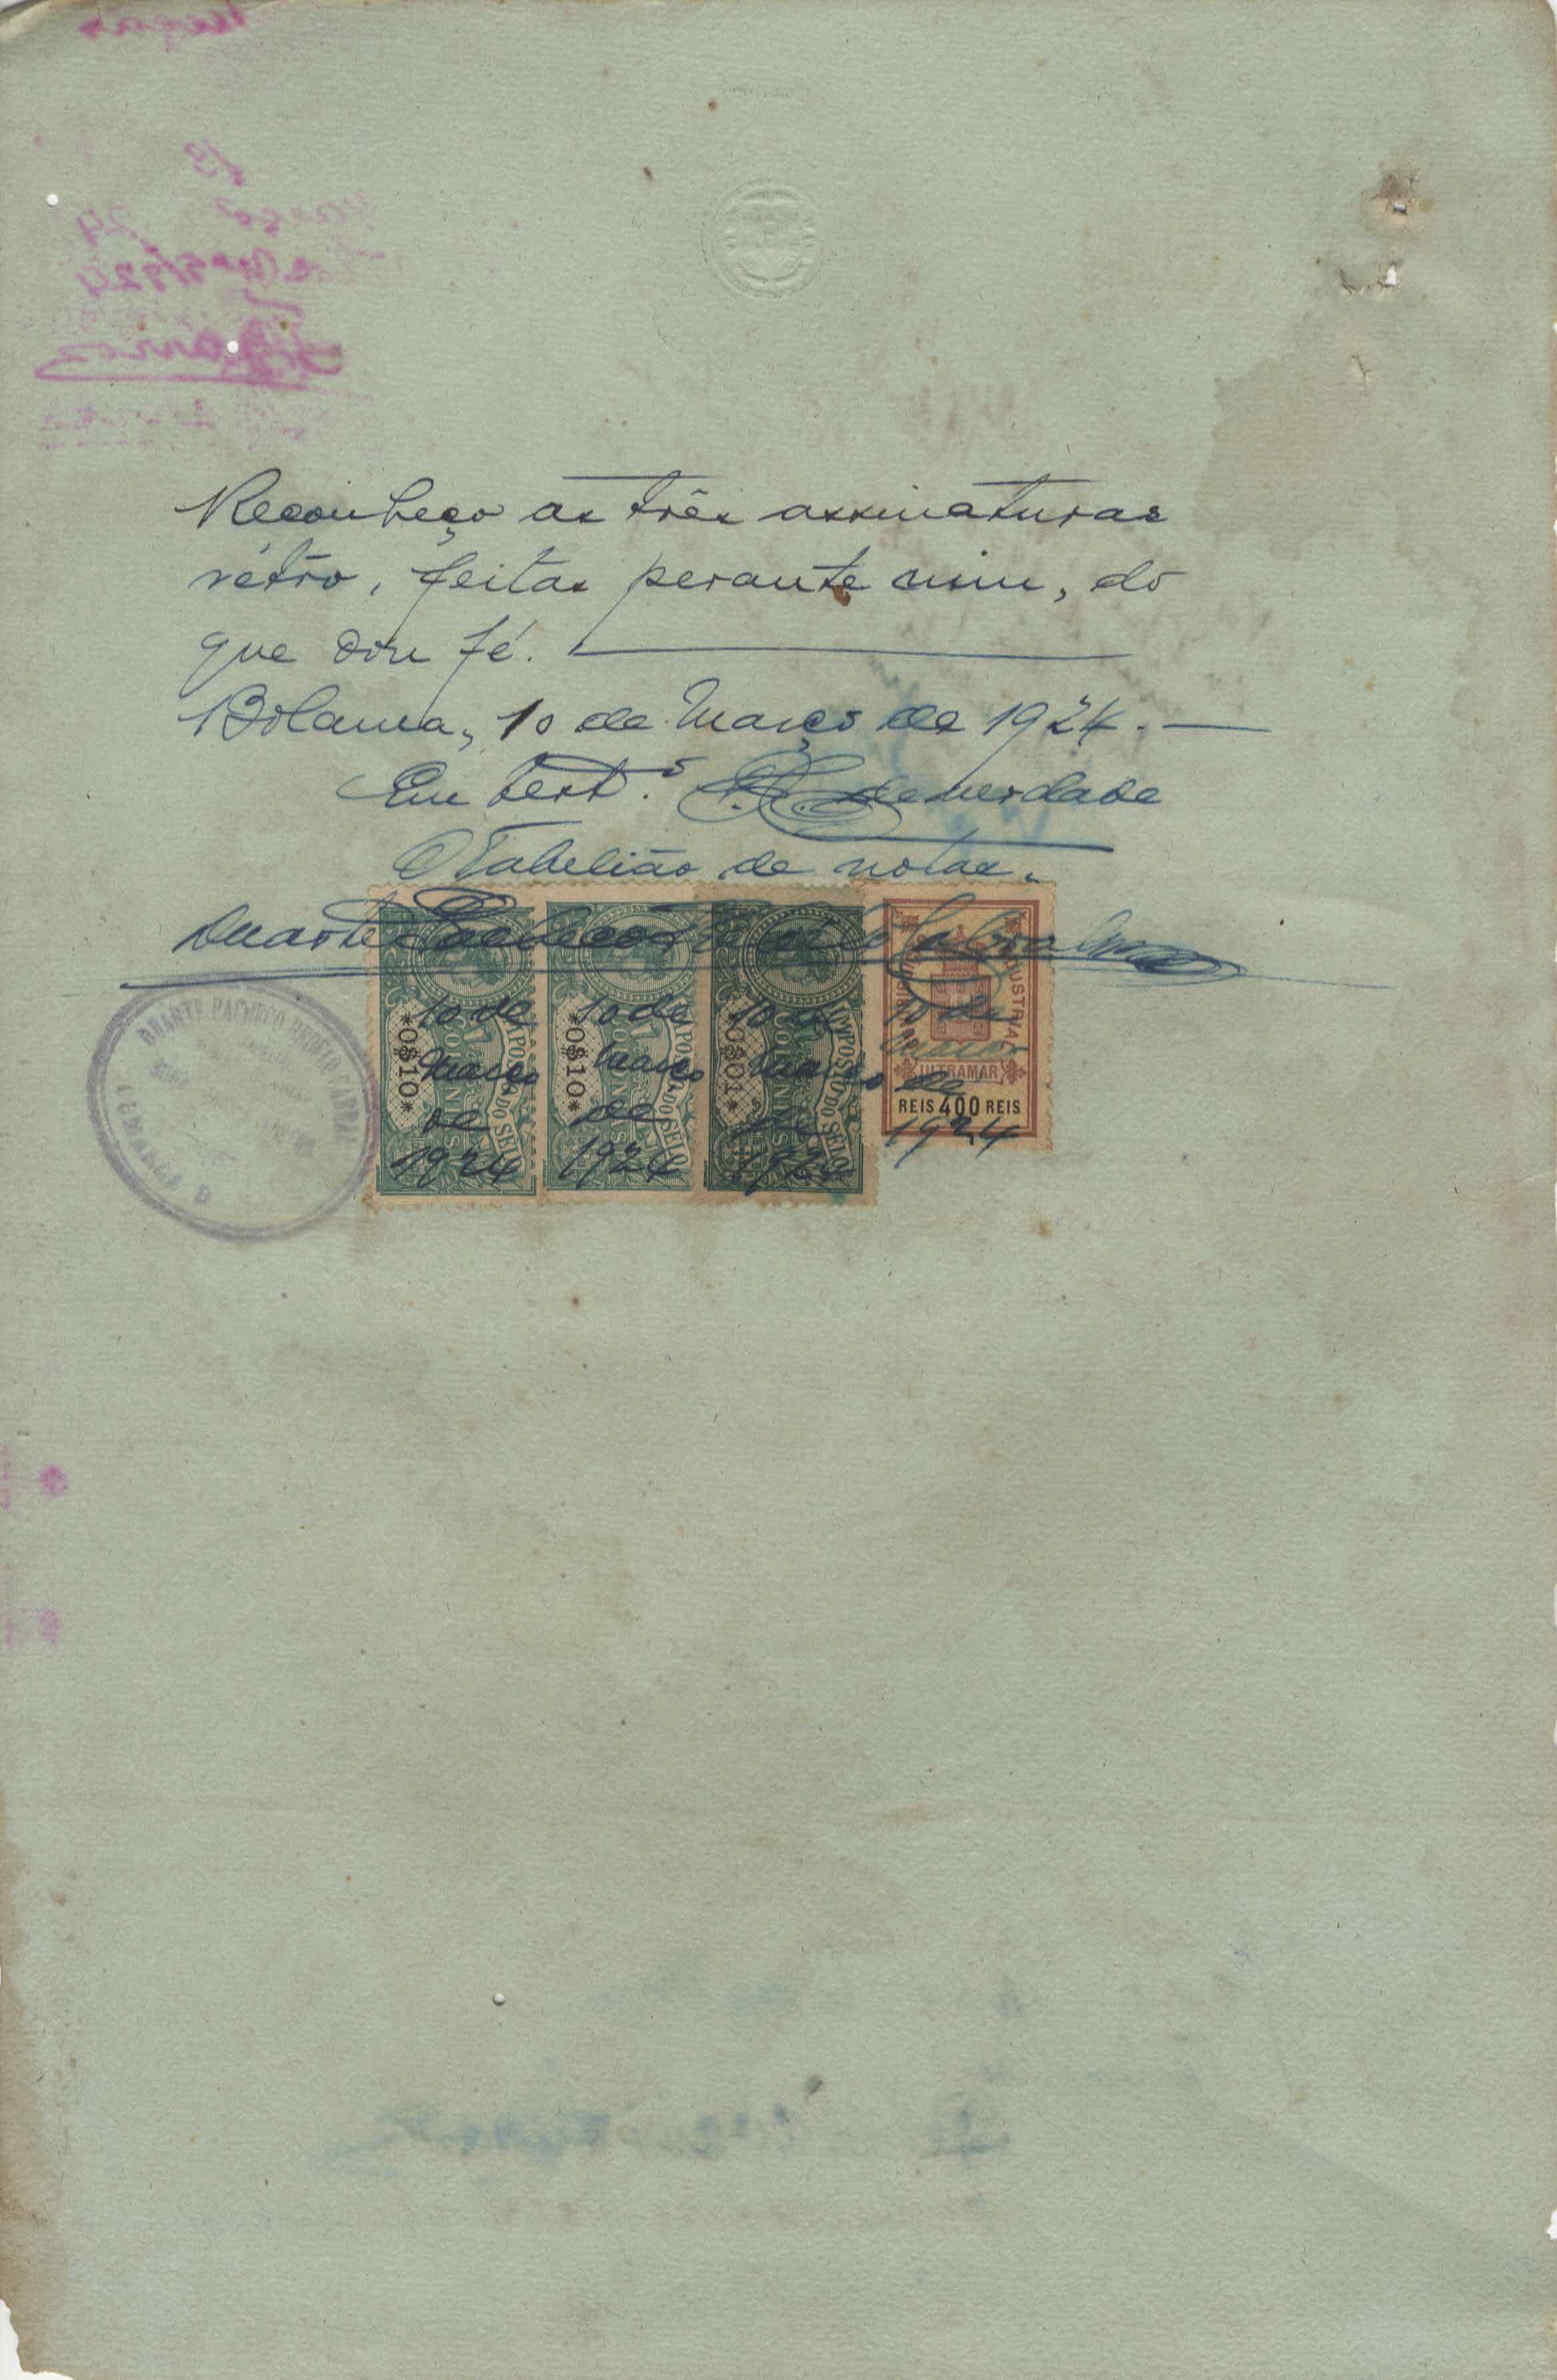 Reconheço as três assinaturas
rétro, feitas perante mim, do
que dou fé.
Bolama, 10 de Março de 1924.
Em test.º de verdade
O Tabelião de notas.
Duarte Pacheco
DUARTE PACHECO
*0$10*
IMPOSTO DO SELO
COLONIAS
10 de
Março
de
1924
*0$10*
IMPOSTO DO SELO
COLONIAS
10 de
Março
de
1924
*0$01*
IMPOSTO DO SELO
COLONIAS
10 de
Março
de
1924
INDUSTRIAL
ULTRAMAR
REIS 400 REIS
10 de
Março
de
1924